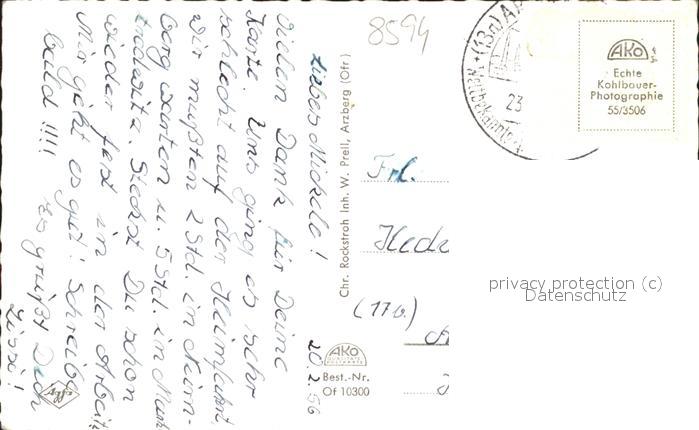 8594
20.2.56
Liebes Mickele!
Vielen Dank für Deine
Karte. Uns ging es sehr
schlecht auf der Heimfahrt.
Wir mußten 2 Std. in Nürn-
berg warten u. 5 Std. in Markt
Steckst Du schon
wieder fest in der Arbeit
Mir geht es gut! Schreibe
bald!!!!
Es grüßt Dich
Chr. Rockstroh Inh. W. Prell, Arzberg (Ofr)
AKO
Best.-Nr.
Of 10300
Agfa
(13a) A
23.
AKO
Echte
Kohlbauer-
Photographie
55/3506
Frl.
Hede
(17b)
privacy protection (c)
Datenschutz